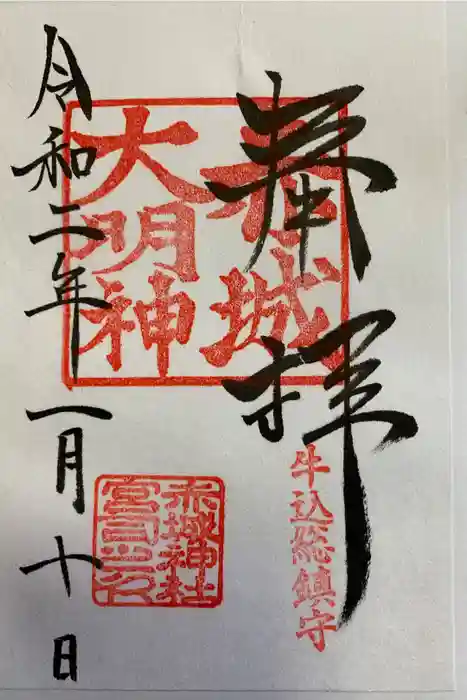 奉拝
赤城
大明神
牛込総鎮守
赤城神社
宮司之印
令和二年一月十日